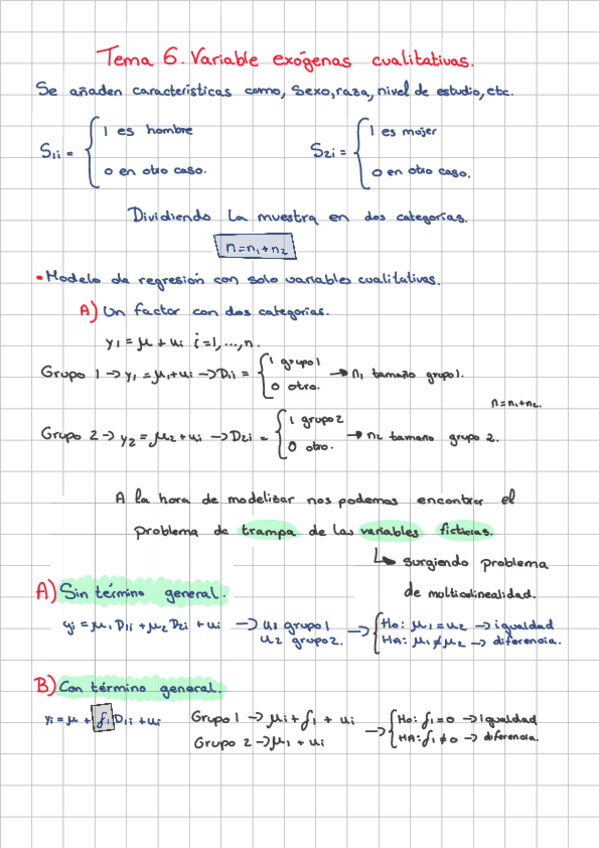 Tema 6. Variable exógenas cualitativas.
Se añaden características como, sexo, raza, nivel de estudio, etc.
S1i = { 1 es hombre
0 en otro caso.
S2i = { 1 es mujer
0 en otro caso.
Dividiendo la muestra en dos categorías.
n = n1 + n2
• Modelo de regresión con solo variables cualitativas.
A) Un factor con dos categorías.
y1 = μ + ui i=1,...,n.
Grupo 1 → y1 = μ1 + ui → D1i = { 1 grupo 1
0 otro. → n1 tamaño grupo 1.
n = n1 + n2.
Grupo 2 → y2 = μ2 + ui → D2i = { 1 grupo 2
0 otro. → n2 tamano grupo 2.
A la hora de modelizar nos podemos encontrar el
problema de trampa de las variables ficticias.
↳ surgiendo problema
de multicolinealidad.
A) Sin término general.
yi = μ1 D1i + μ2 D2i + ui → u1 grupo 1
u2 grupo 2. → { Ho: μ1 = μ2 → igualdad
HA: μ1 ≠ μ2 → diferencia.
B) Con término general.
yi = μ + f1 D1i + ui
Grupo 1 → μi + f1 + ui
Grupo 2 → μ1 + ui
→ { Ho: f1 = 0 → igualdad
HA: f1 ≠ 0 → diferencia.